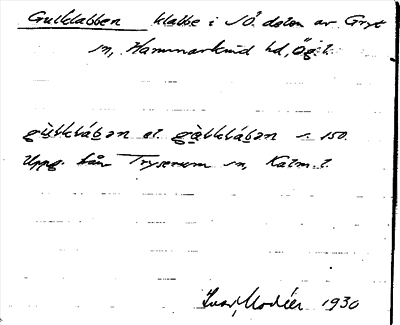 Gulklabben klabbe i SÖ. delen av Gryt
sn, Hammarkind hd, Ög. l.
gùlklábən el. gàlklábən s. 150.
Uppg. från Tryserum sn, Kalm. l.
Ivar Modéer 1930